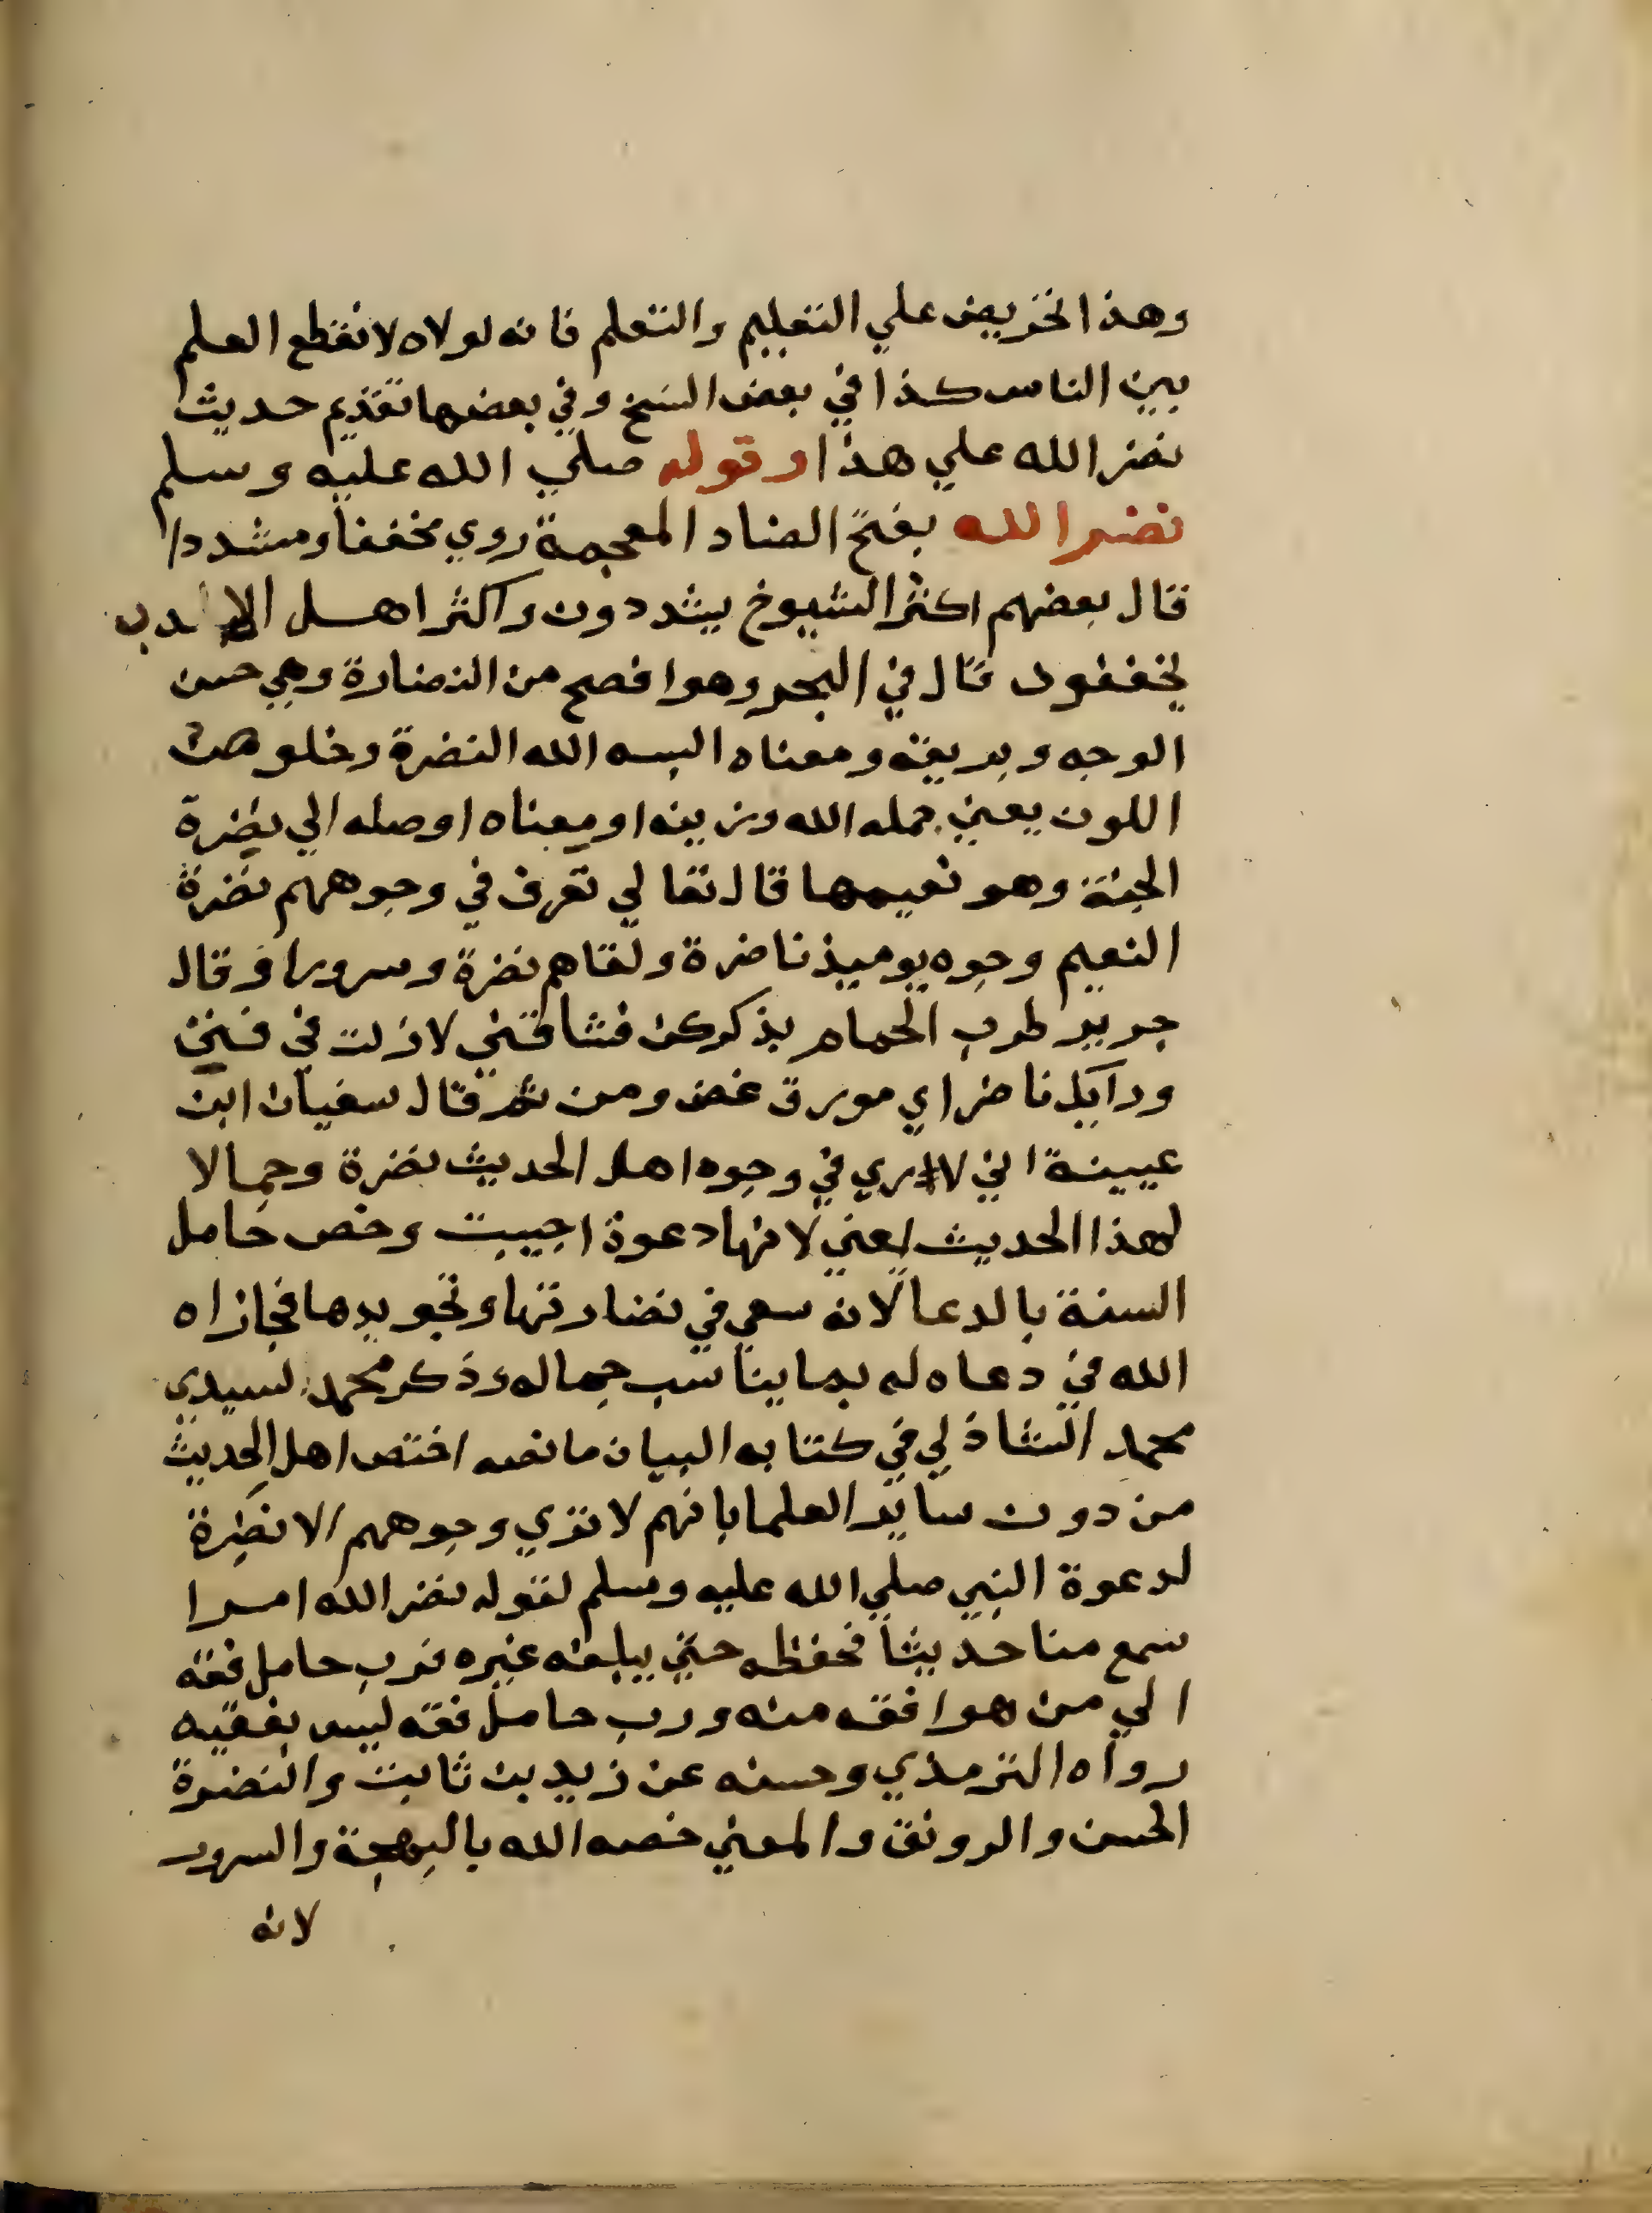 وهذا تحريض علي التعليم والتعلم فانه لولاه لانقطع العلم
بين الناس كذا في بعض النسخ وفي بعضها تقديم حديث
نضر الله علي هذا وقوله صلي الله عليه وسلم
نضر الله بفتح الضاد المعجمة روي مخففا ومشددا
قال بعضهم اكثر الشيوخ يشددون واكثر اهل الادب
يخففون قال في البحر وهو افصح من النضارة وهي حسن
الوجه وبريقه ومعناه البسه الله النضرة وخلوص
اللون يعني جمله الله وزينه او معناه اوصله الي نضرة
الجنة وهو نعيمها قال تعالي تعرف في وجوههم نضرة
النعيم وجوه يوميذ ناضرة ولقاهم نضرة وسرورا وقال
جرير طرب الحمام بذكركن فشاقني لازلت في فنن
وايك ناضر اي مورق غض ومن ثم قال سفيان ابن
عيينة اني لاري في وجوه اهل الحديث نضرة وجمالا
لهذا الحديث يعني لانها دعوة اجيبت وخص حامل
السنة بالدعا لانه سعي في نضارتها وتجويدها فجازاه
الله في دعاه له بما يناسب جماله وذكر محمد لسيدي
محمد الشاذلي في كتابه البيان ما نصه اختص اهل الحديث
من دون ساير العلما بانهم لا تري وجوههم الا نضرة
لدعوة النبي صلي الله عليه وسلم لقوله نضر الله امرا
سمع منا حديثا فحفظه حتي يبلغه غيره فرب حامل فقه
الي من هو افقه منه ورب حامل فقه ليس بفقيه
رواه الترمذي وحسنه عن زيد بن ثابت والنضرة
الحسن والرونق والمعني خصه الله بالبهجة والسرور
لانه